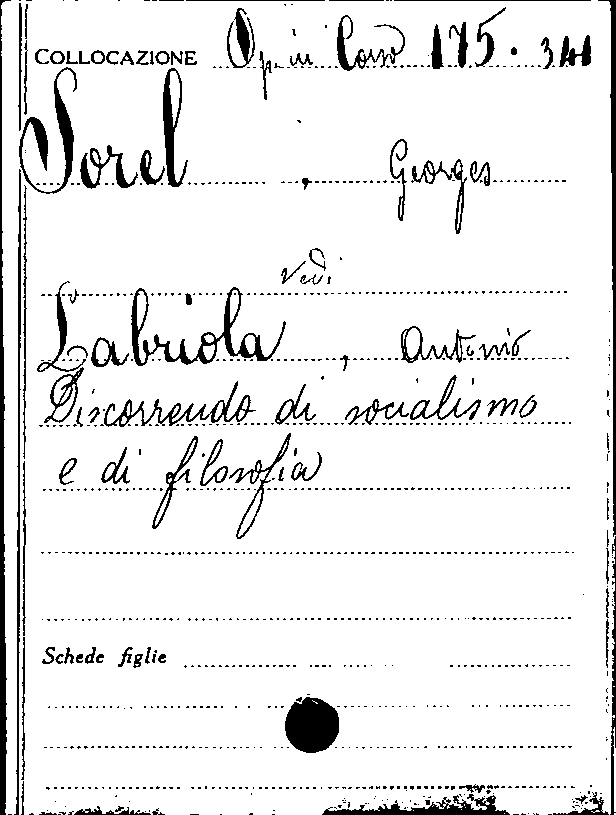 COLLOCAZIONE Op. in Corso 175. 341
Sorel, Georges
Vedi
Labriola, Antonio
Discorrendo di socialismo
e di filosofia
Schede figlie